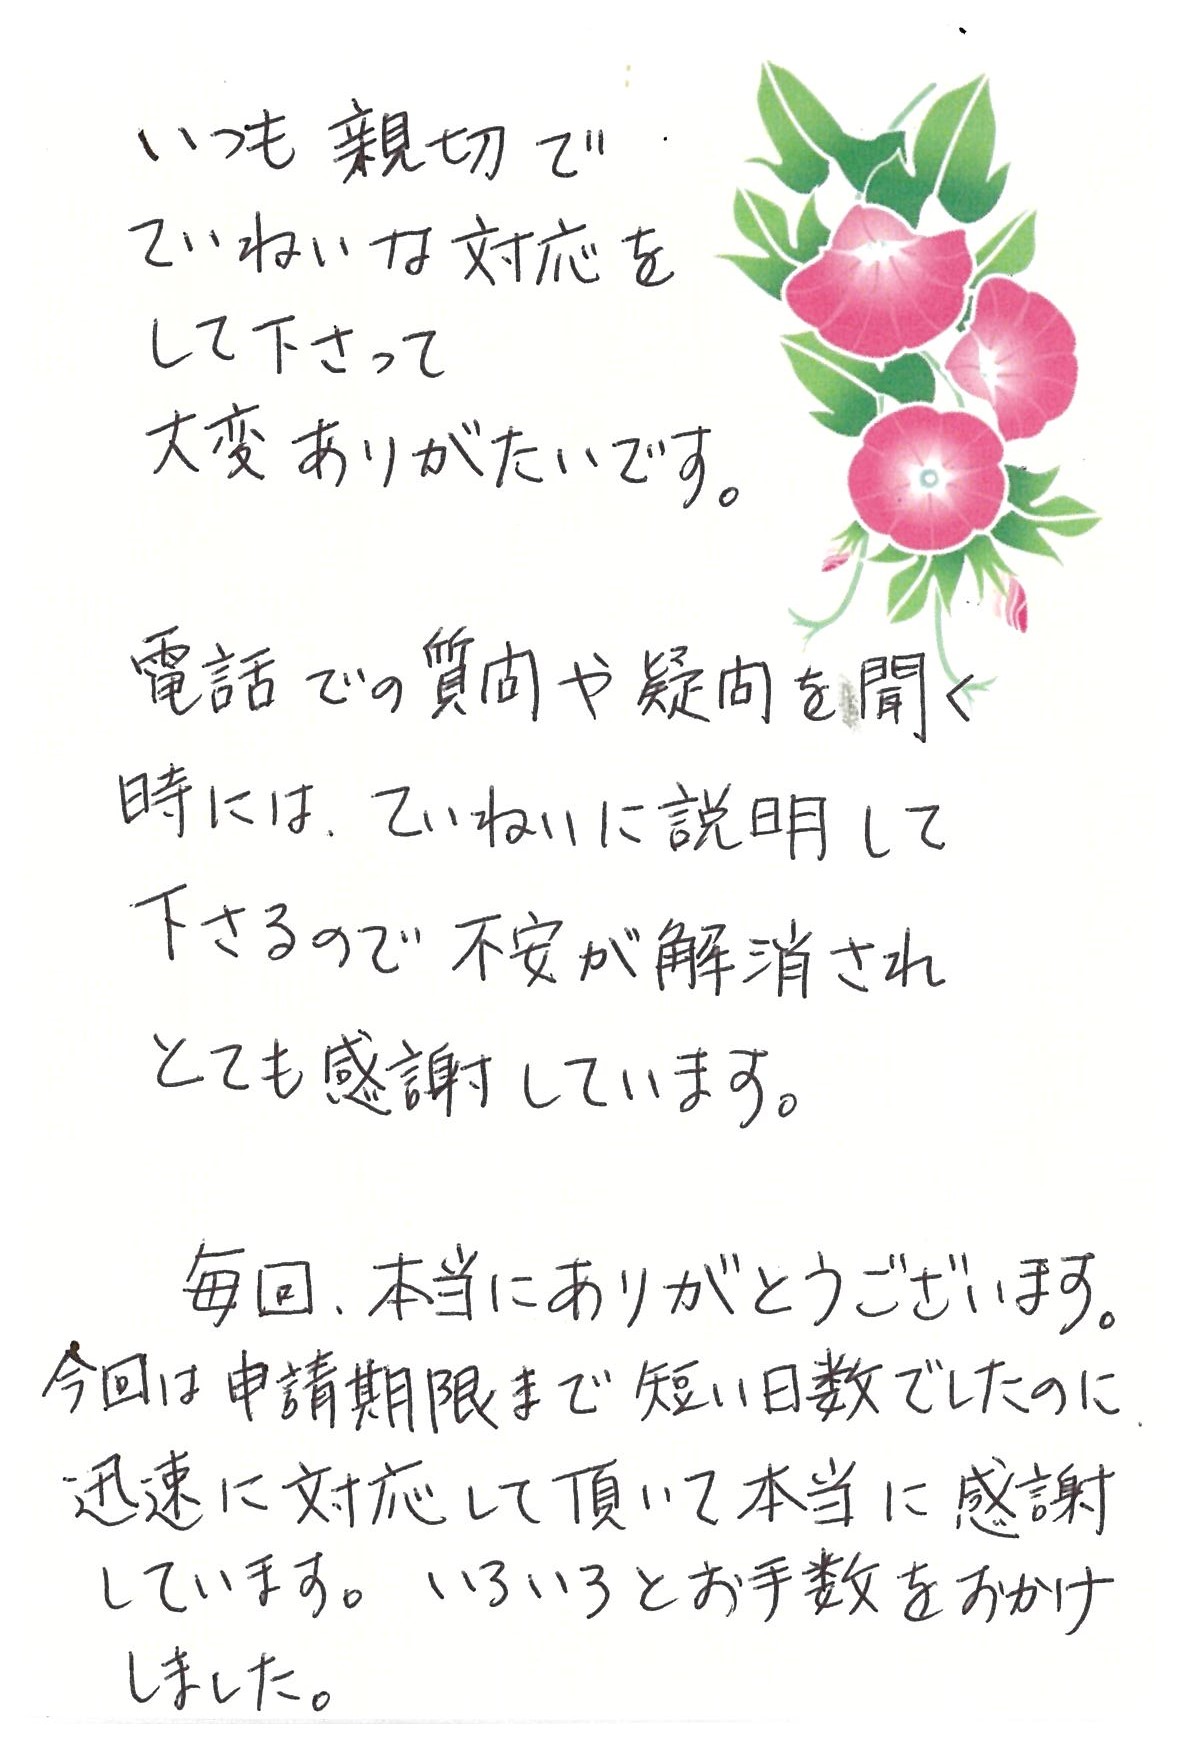 いつも親切で
ていねいな対応を
して下さって
大変ありがたいです。
電話での質問や疑問を聞く
時には、ていねいに説明して
下さるので不安が解消され
とても感謝しています。
毎回、本当にありがとうございます。
今回は申請期限まで短い日数でしたのに
迅速に対応して頂いて本当に感謝
しています。いろいろとお手数をおかけ
しました。